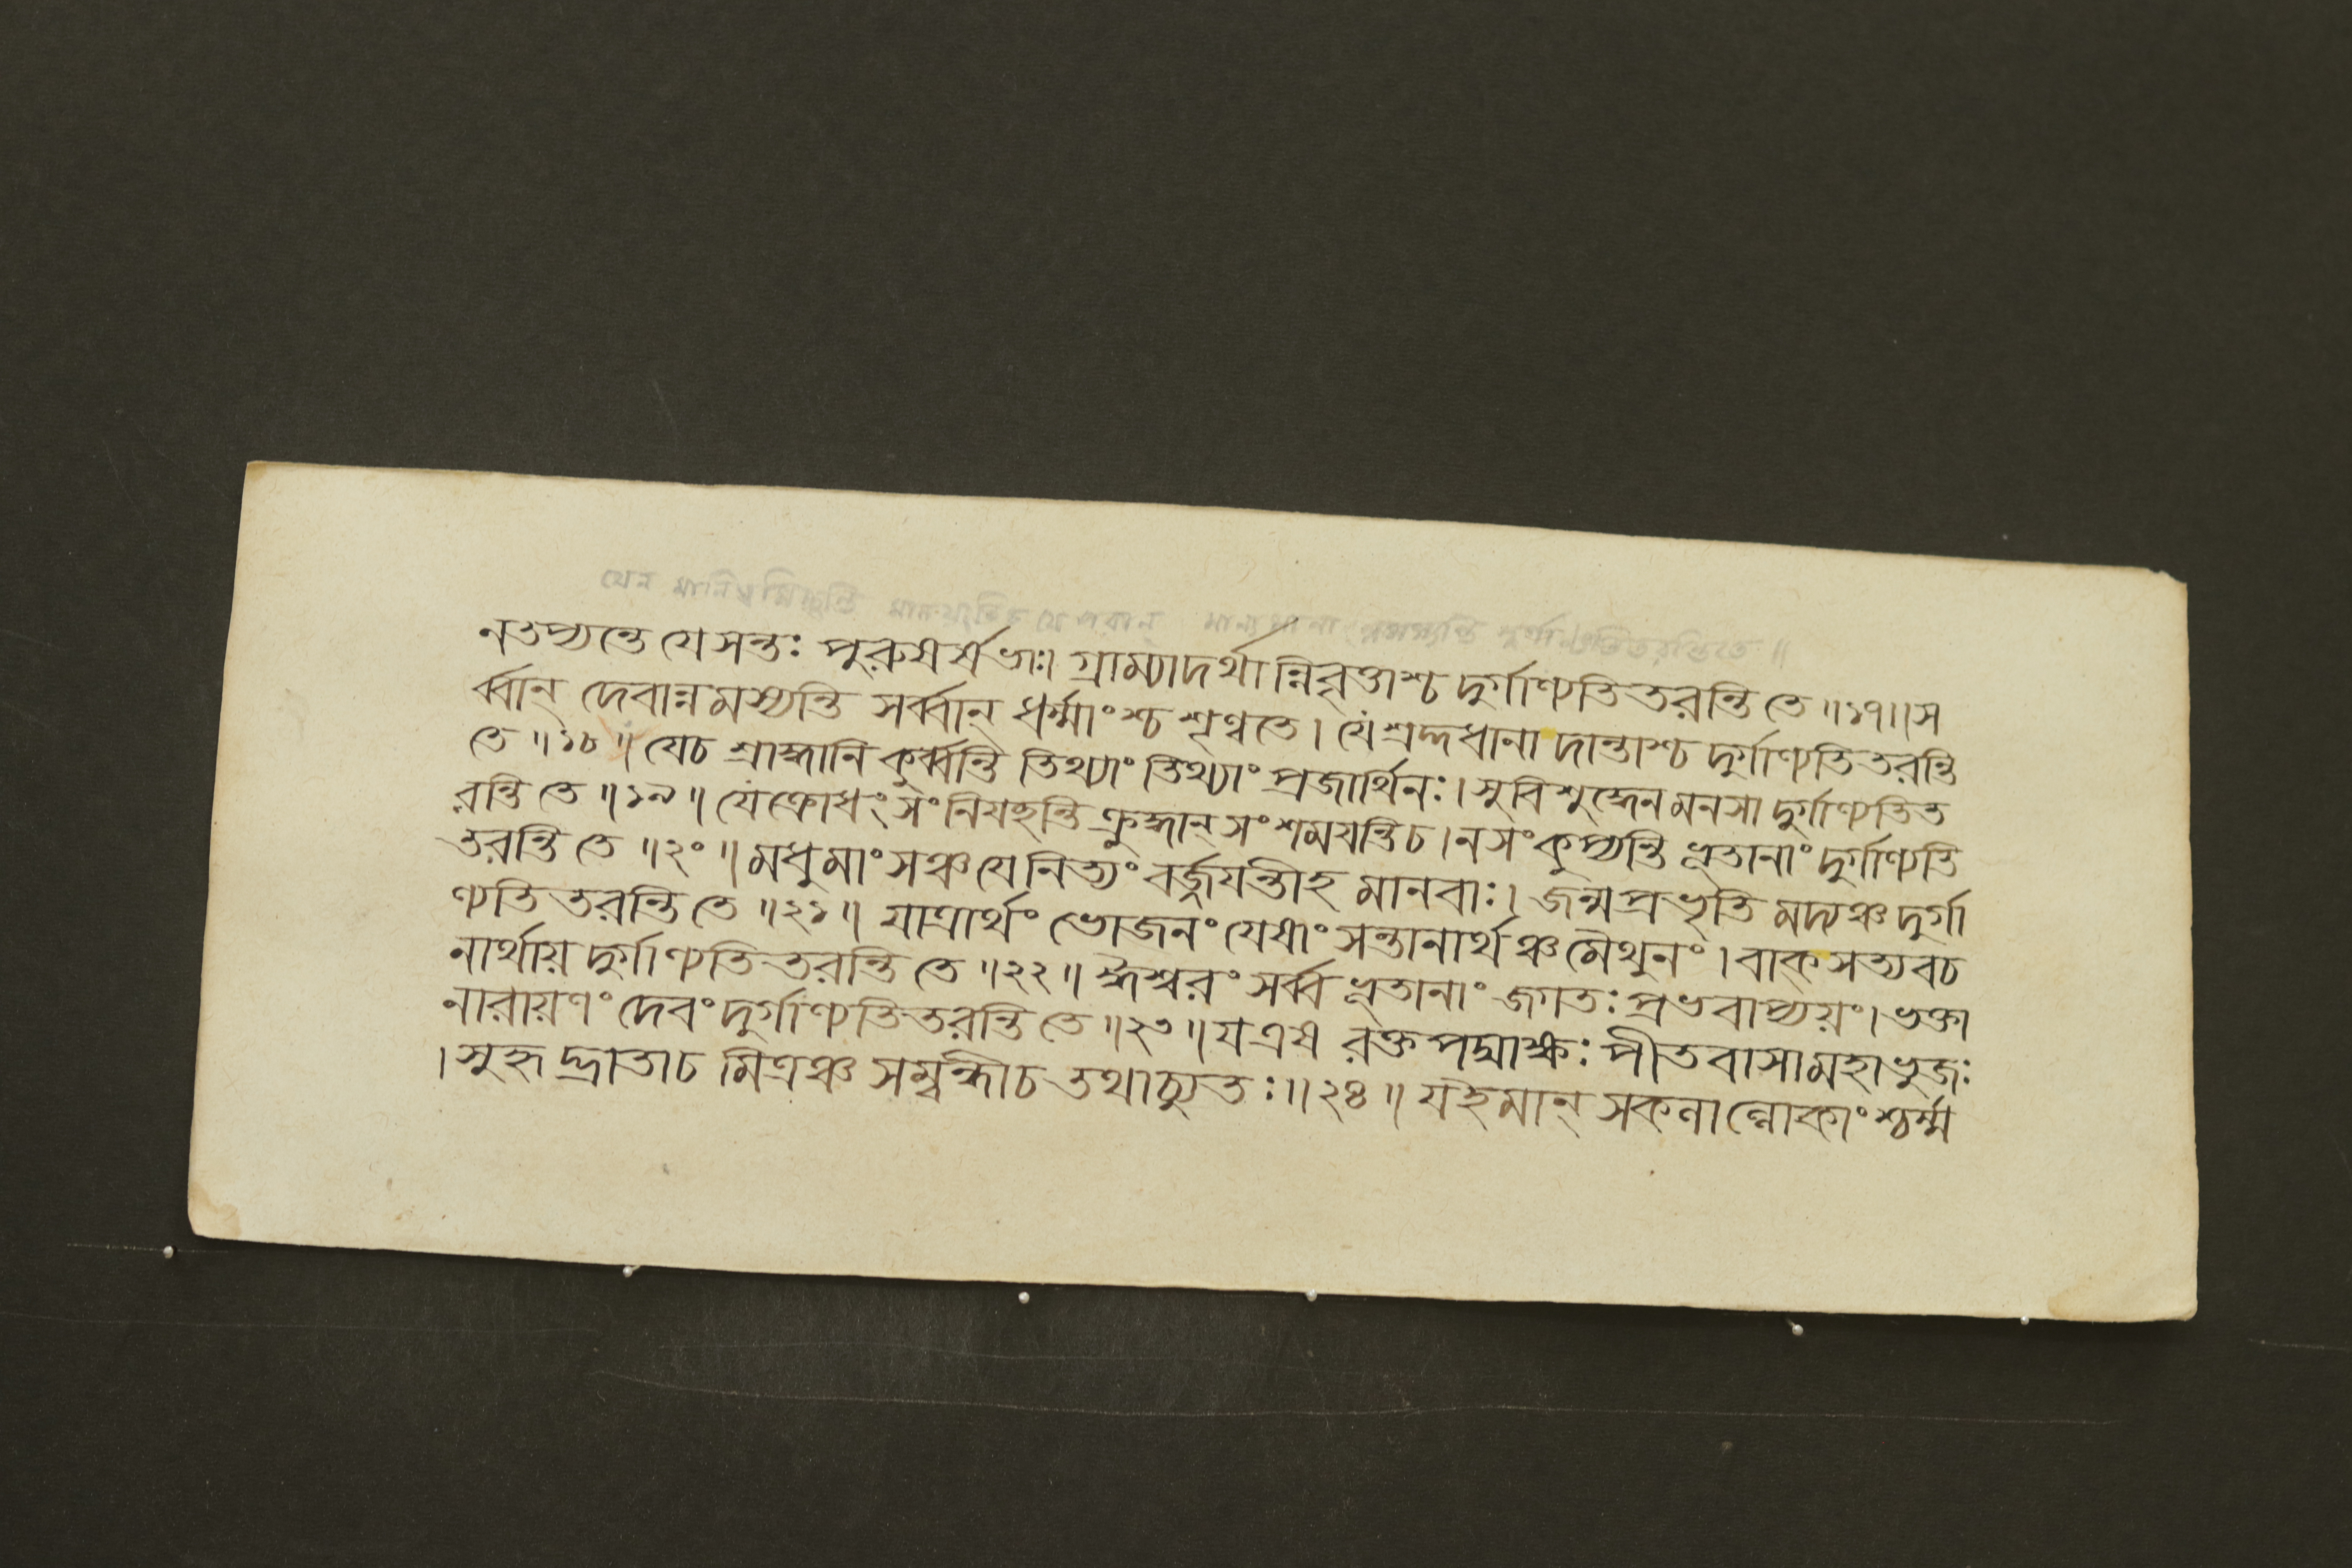 যেন মানিত্বমিচ্ছন্তি মানয়ন্তিচ যে পরান্ মান্যমানা নমস্যন্তি দুর্গাণ্যতিতরন্তিতে ॥
নতপ্যন্তে যে সন্তঃ পুরুষর্ষভাঃ। গ্রাম্যাদর্থান্নিবৃত্তাশ্চ দুর্গাণ্যতিতরন্তি তে ॥১৭॥স
র্ব্বান্ দেবান্নমস্যন্তি সর্ব্বান্ ধর্ম্মাংশ্চ শৃণ্বতে। যে শ্রদ্দধানা দান্তাশ্চ দুর্গাণ্যতিতরন্তি
তে ॥১৮॥ যেচ শ্রাদ্ধানি কুর্ব্বন্তি তিথ্যাং তিথ্যাং প্রজার্থিনঃ। সুবিশুদ্ধেন মনসা দুর্গাণ্যতিত
রন্তি তে ॥১৯॥ যে ক্রোধং সংনিযহন্তি ক্রুদ্ধান্ সংশময়ন্তিচ। নসংকুপ্যন্তি ভূতানাং দুর্গাণ্যতি
তরন্তি তে ॥২০॥ মধুমাংসঞ্চ যে নিত্যং বর্জ্জয়ন্তীহ মানবাঃ। জন্মপ্রভৃতি মদ্যঞ্চ দুর্গা
ণ্যতি তরন্তি তে ॥২১॥ যাত্রার্থং ভোজনং যেষাং সন্তানার্থঞ্চ মৈথুনং। বাক্সত্যবচ
নার্থায় দুর্গাণ্যতিতরন্তি তে ॥২২॥ ঈশ্বরং সর্ব্বভূতানাং জগতঃ প্রভবাপ্যয়ং। ভক্তা
নারায়ণং দেবং দুর্গাণ্যতিতরন্তি তে ॥২৩॥ য এষ রক্তপদ্মাক্ষঃ পীতবাসা মহাভুজঃ
। সুহৃদ্ভ্রাতাচ মিত্রঞ্চ সম্বন্ধীচ তথাচ্যুতঃ॥২৪॥ যইমান্ সকলাল্লোকাংশ্চর্ম্ম